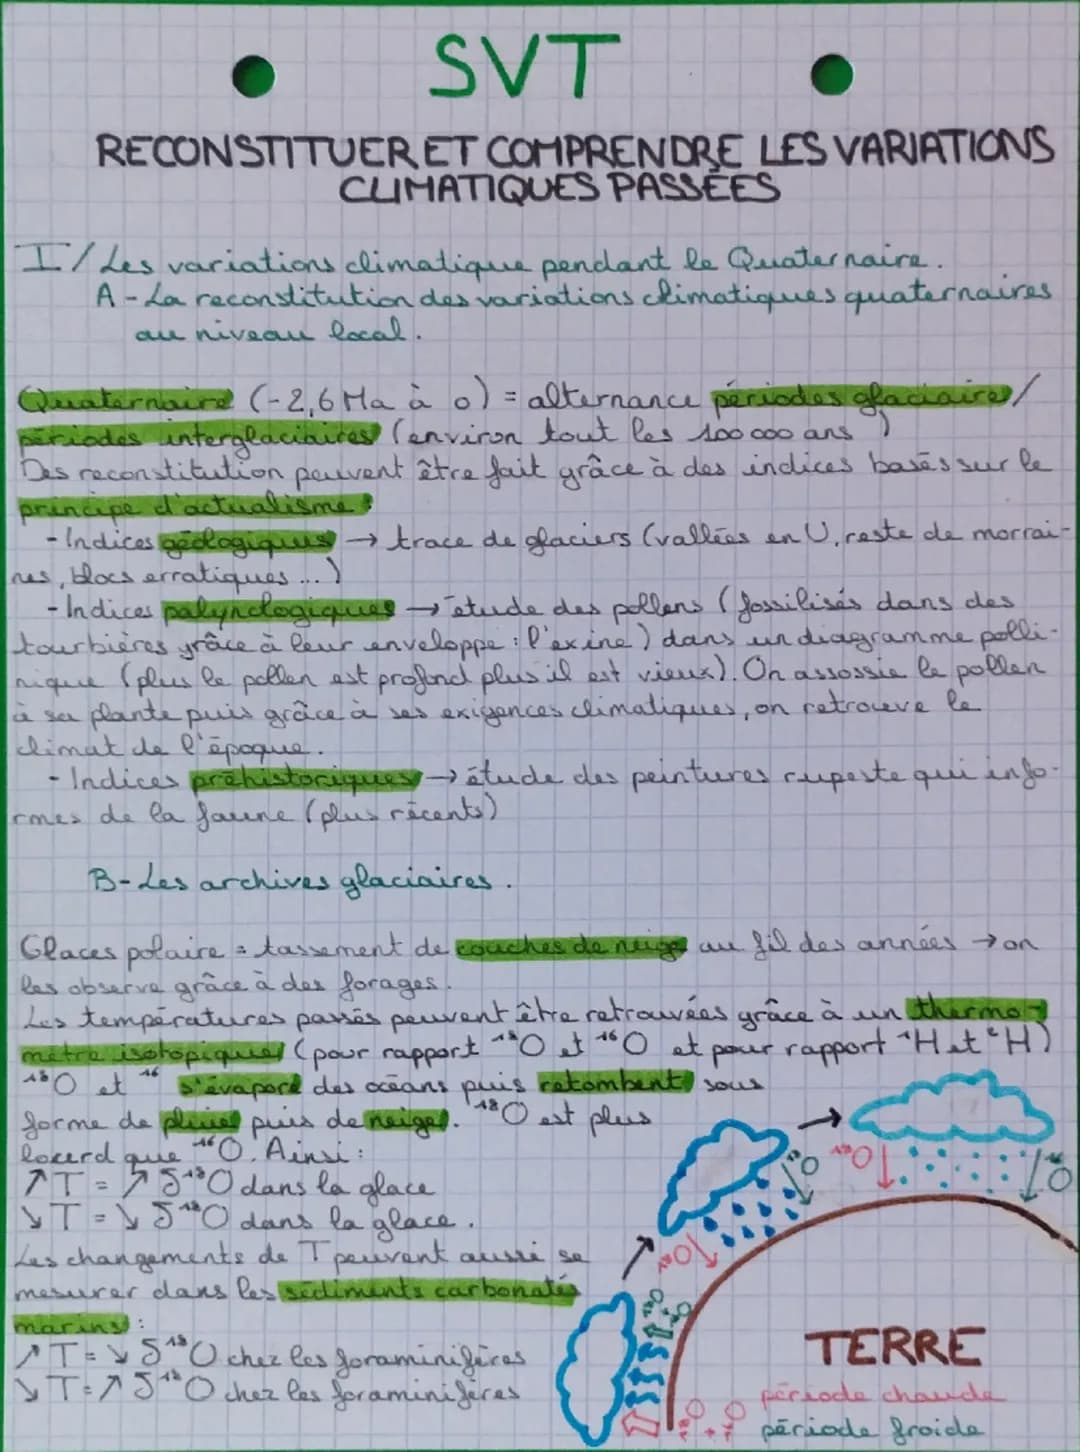 SVT
RECONSTITUER ET COMPRENDRE LES VARIATIONS
CLIMATIQUES PASSÉES
I/ Les variations climatique pendant le Quaternaire.
A - La reconstitution des variations climatiques quaternaires
au niveau local.
Quaternaire (-2,6 Ma à 0) = alternance périodes glaciaire/
périodes interglaciaires (environ tout les 100 000 ans)
Des reconstitution peuvent être fait grâce à des indices basés sur le
principe d'actualisme :
- Indices géologiques → trace de glaciers (vallées en U, reste de morrai-
nes, blocs erratiques ...)
- Indices palynologiques → étude des pollens (fossilisés dans des
tourbières grâce à leur enveloppe : l'exine) dans un diagramme polli-
nique (plus le pollen est profond plus il est vieux). On assossie le pollen
à sa plante puis grâce à ses exigences climatiques, on retrouve le
climat de l'époque.
- Indices préhistoriques → étude des peintures rupeste qui info-
rmes de la faune (plus récents)
B- Les archives glaciaires.
Glaces polaire = tassement de couches de neige au fil des années → on
les observe grâce à des forages.
Les températures passés peuvent être retrouvées grâce à un thermo-
mètre isotopique (pour rapport ¹⁸O et ¹⁶O et pour rapport ¹H et ²H)
¹⁸O et ¹⁶ s'évapore des océans puis retombent sous
forme de pluie puis de neige. ¹⁸O est plus
lourd que ¹⁶O. Ainsi :
↗T = ↗ δ¹⁸O dans la glace
↘T = ↘ δ¹⁸O dans la glace.
Les changements de T peuvent aussi se
mesurer dans les sédiments carbonatés
marins :
↗T = ↘ δ¹⁸O chez les foraminifères
↘T = ↗ δ¹⁸O chez les foraminifères
¹⁸O ¹⁸O
¹⁸O
¹⁸O
TERRE
période chaude
période froide